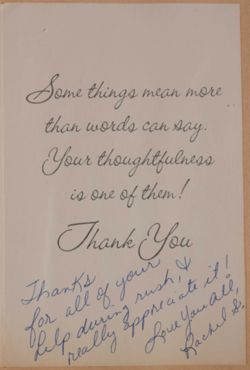 Some things mean more
than words can say.
Your thoughtfulness
is one of them!
Thank You
Thanks
for all of your
help during rush, &
really appreciate it!
Love You All,
Rachel S.